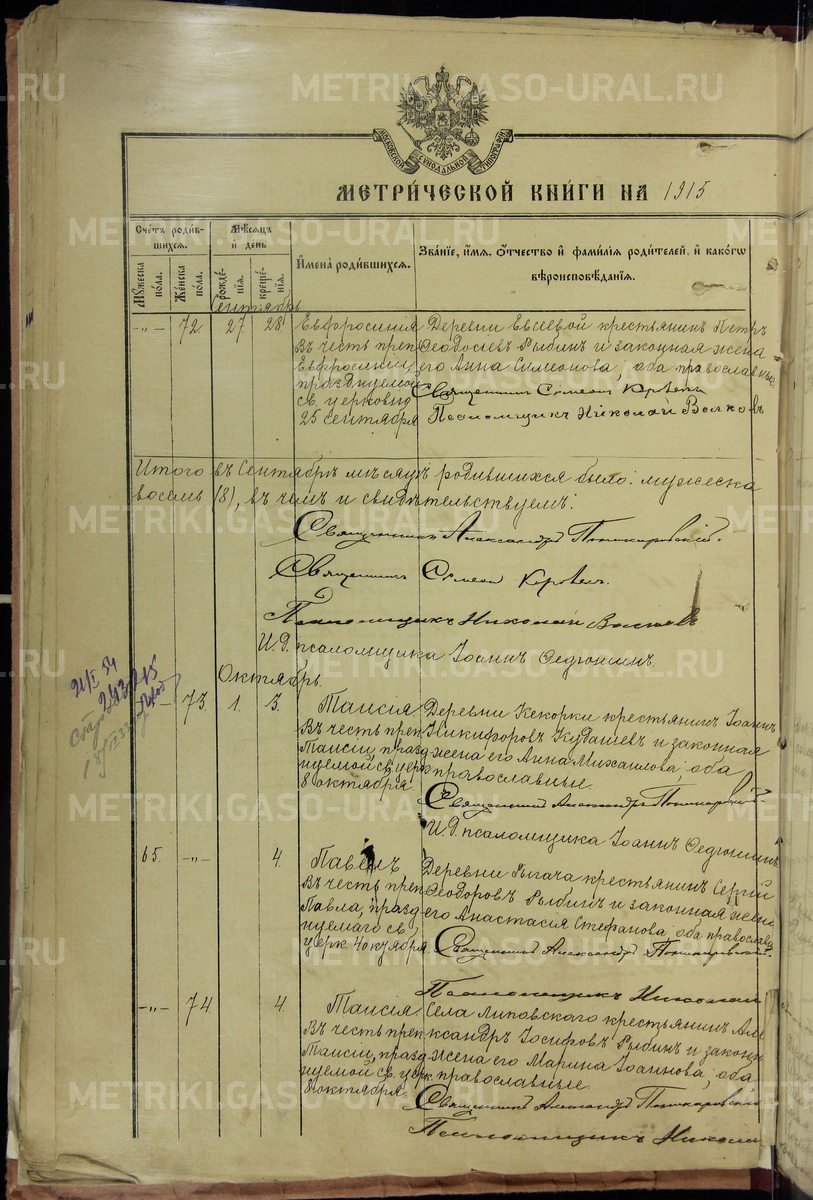 METRIKI.GASO-URAL.RU
МОСКОВСКОЙ СИНОДАЛЬНОЙ ТИПОГРАФІИ
МЕТРИ́ЧЕСКОЙ КНИ́ГИ НА 1915
Сче́тъ роди́в-
шихся.
Мѣсяцъ
и҆ день
И҆мена̀ роди́вшихся.
Зва́нїе, и҆́мя, ѻ҆́тчество и҆ фами́лїя роди́телей, и҆ како́гѡ
вѣроисповѣ́данїя.
Му́жеска по́ла.
Же́нска по́ла.
рожде́-нїя.
креще́-нїя.
Сентябрь
-„- 72 27. 28.
Евфросинія
Въ честь преп
Евфросиніи,
празднуемой
св. церковію
25 сентября
Деревни Евсеевой крестьянинъ Петръ
Ѳеодосіевъ Рыбинъ и законная жена
его Анна Симеонова, оба православные
Священникъ Симеон
Псаломщикъ Николай Волковъ
Итого въ Сентябрѣ мѣсяцѣ родившихся было: мужеска
восемь (8), въ чемъ и свидѣтельствуемъ:
Священникъ Александръ
Священникъ Симеон
Псаломщикъ Николай Волковъ
И.Д. псаломщика Іоаннъ Федюшинъ.
Октябрь.
73. 1. 3.
Таисія
Въ честь преп
Таисіи, празд
нуемой св. церк
8 октября
Деревни Кекорки крестьянинъ Іоаннъ
Никифоровъ Кудашевъ и законная
жена его Анна Михаилова, оба
православные.
Священникъ Александръ
И.Д. псаломщика Іоаннъ Федюшинъ
65. -„- 4.
Павелъ
Въ честь преп
Павла, празд
нуемаго св.
церк. 4 октября
Деревни крестьянинъ Сергій
Ѳеодоровъ Рыбинъ и законная жена
его Анастасія Стефанова, оба православн
Священникъ Александръ
Псаломщикъ Николай
-„- 74 4.
Таисія
Въ честь преп
Таисіи, празд
нуемой св. церк
8 октября
Села Липовского крестьянинъ Але
ксандръ Іосифовъ Рыбинъ и законн
жена его Марина Іоаннова, оба
православные
Священникъ Александръ
Псаломщикъ Никола